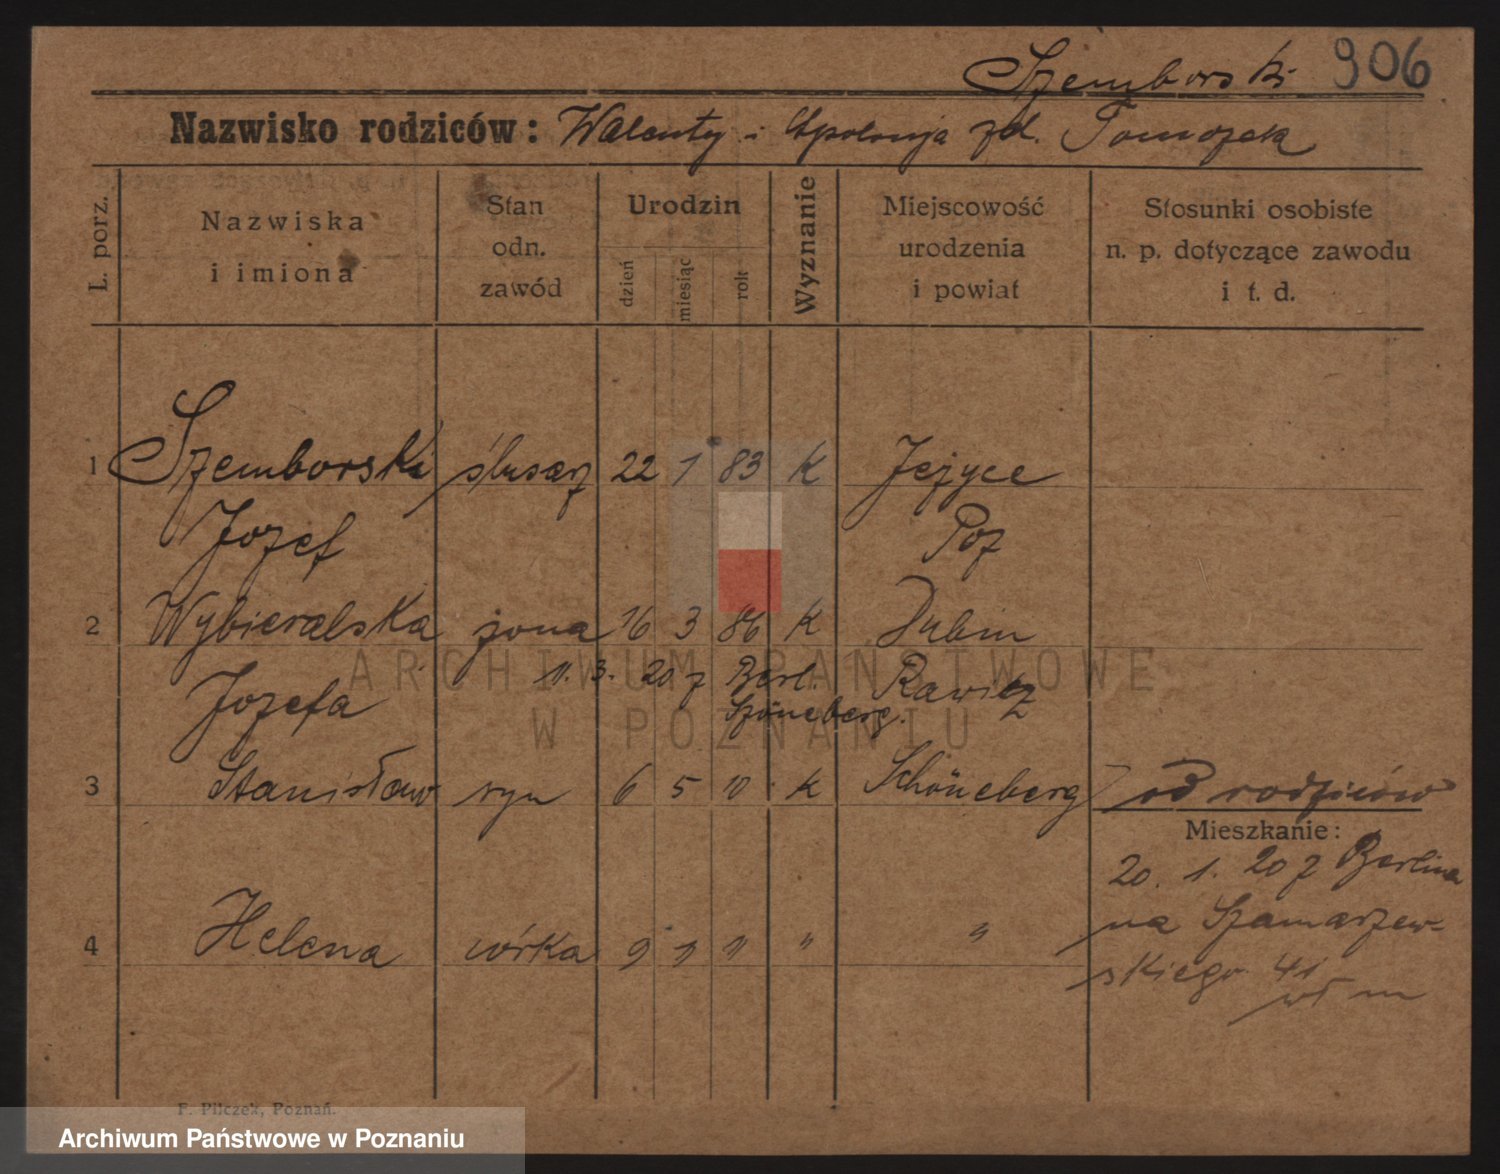 Szemborski 906
Nazwisko rodziców: Walenty i Apolonja zd. Tomczak
L. porz.
Nazwiska
i imiona
Stan
odn.
zawód
Urodzin
dzień
miesiąc
rok
Wyznanie
Miejscowość
urodzenia
i powiat
Stosunki osobiste
n. p. dotyczące zawodu
i t. d.
1 Szemborski ślusarz 22 1 83 K Jeżyce
Jozef Poz
2 Wybieralska żona 16 3 86 K Dubin
11. 3. 20 z Berl. Rawicz
Jozefa Szöneberg.
3 Stanisław syn 6 5 10 K Schöneberg od rodziców
Mieszkanie:
20. 1. 20 z Berlina
na Szamarzew-
4 Helena córka 9 1 11 " "
skiego 41
wł m
F. Pilczek, Poznań.
ARCHIWUM PAŃSTWOWE
W POZNANIU
Archiwum Państwowe w Poznaniu